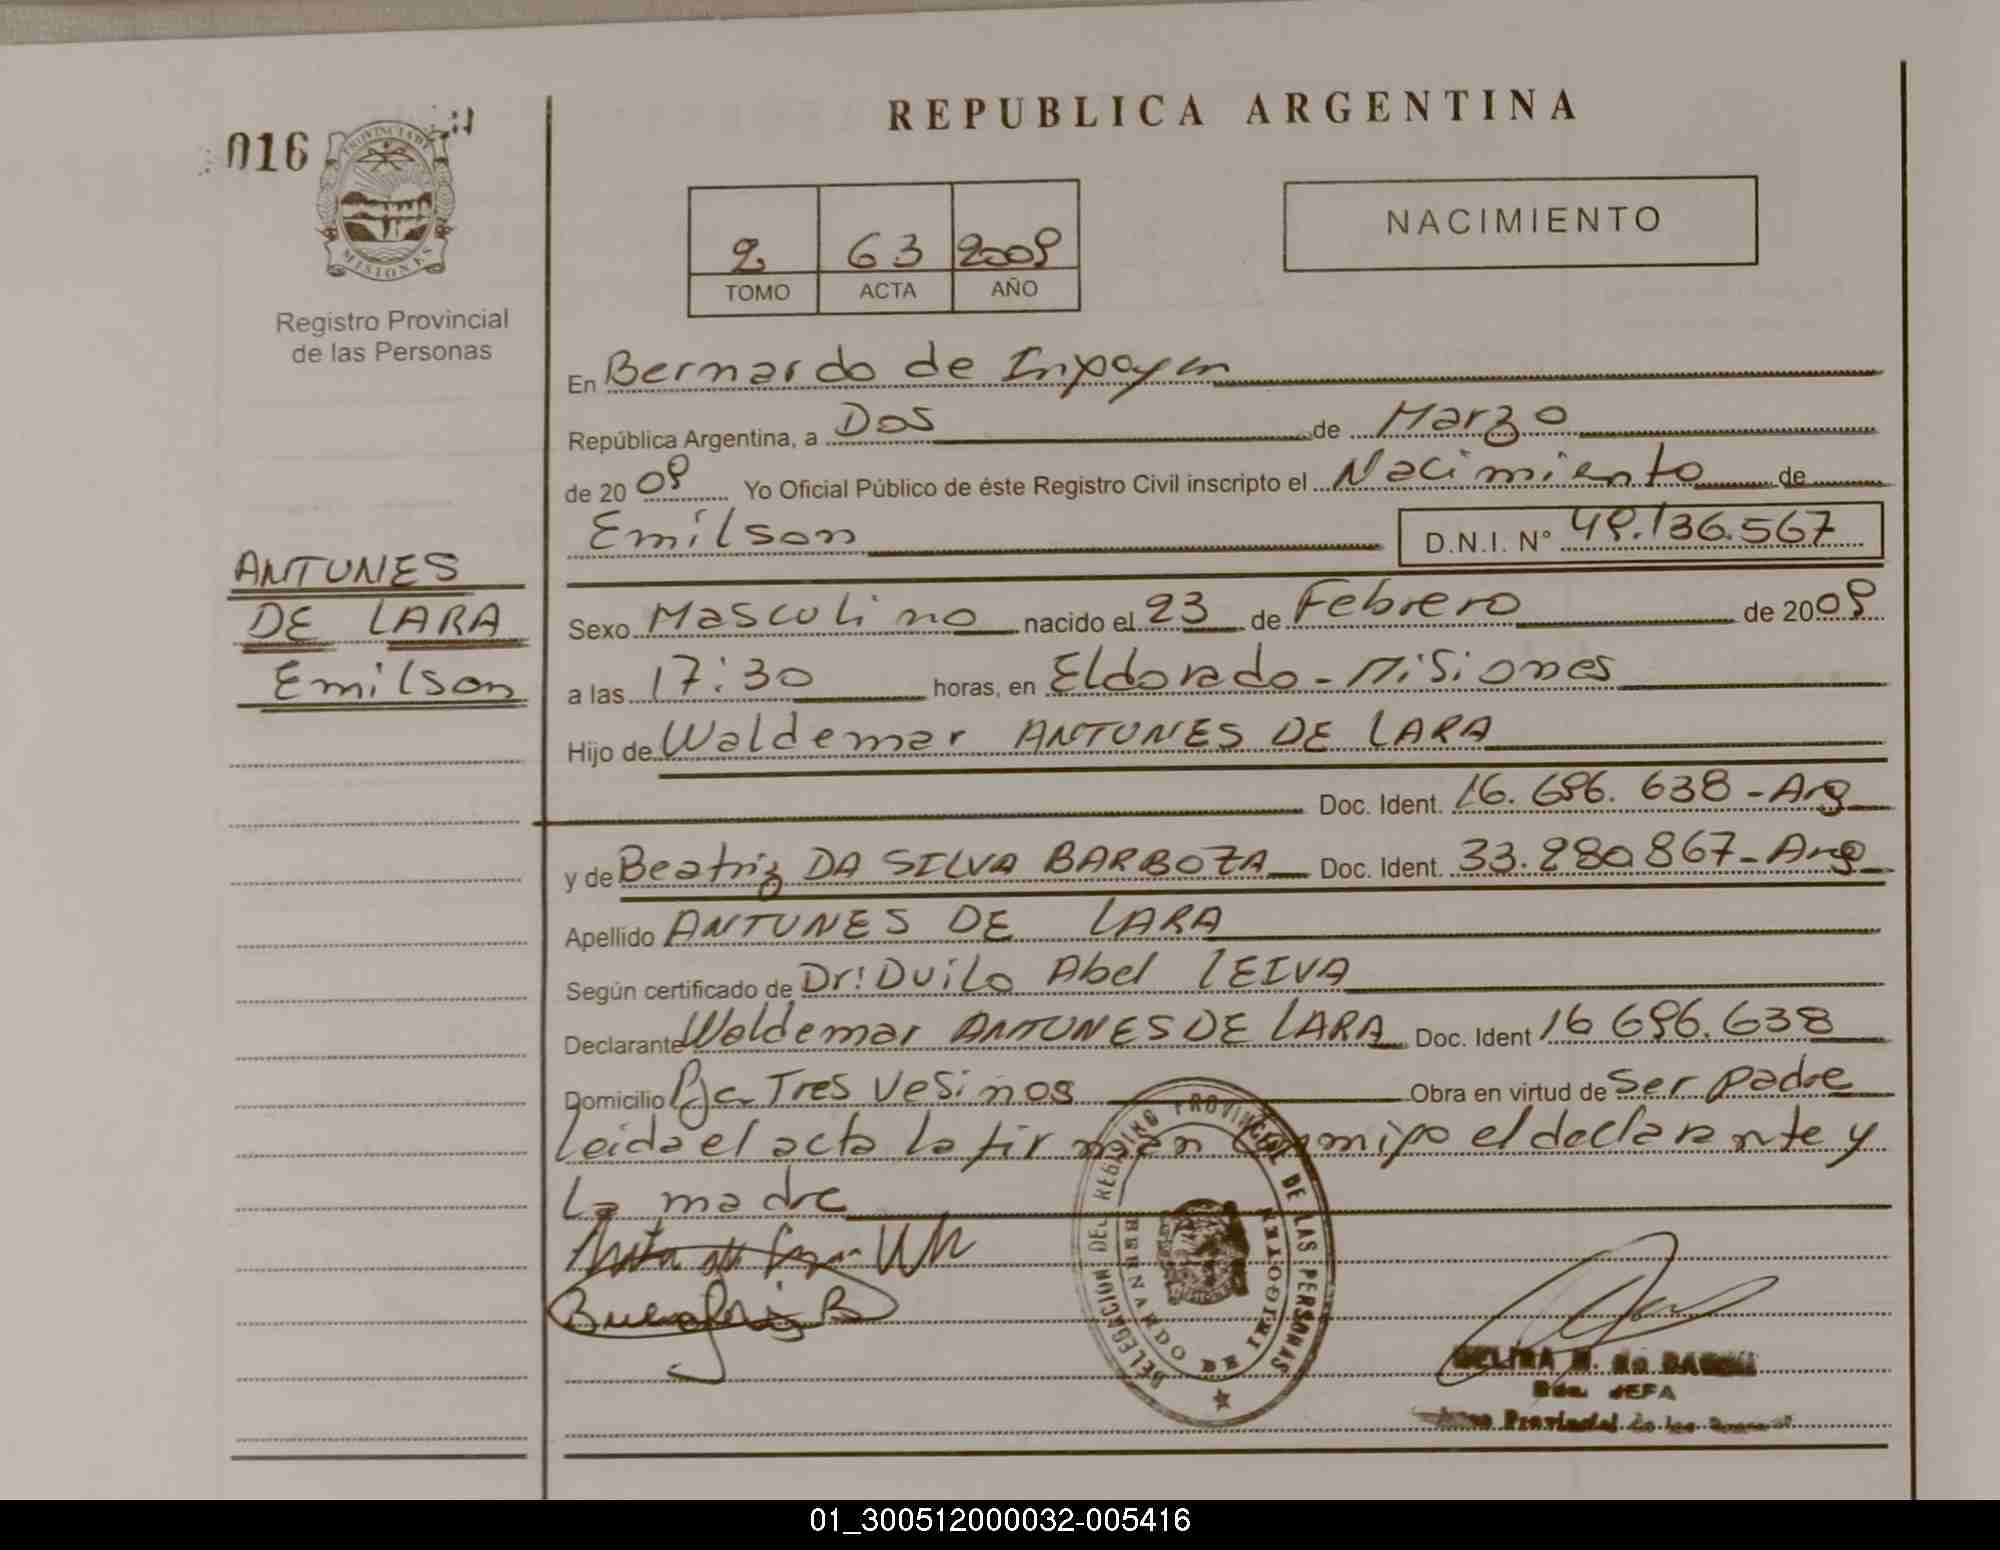 REPUBLICA ARGENTINA
016
PROVINCIA DE
MISIONES
Registro Provincial
de las Personas
2 63 2009
TOMO ACTA AÑO
NACIMIENTO
En Bernardo de Irigoyen
República Argentina, a Dos de Marzo
de 2009 Yo Oficial Público de éste Registro Civil inscripto el Nacimiento de
Emilson D.N.I. N° 49.136.567
ANTUNES
DE LARA
Emilson
Sexo Masculino nacido el 23 de Febrero de 2009
a las 17:30 horas, en Eldorado - Misiones
Hijo de Waldemar ANTUNES DE LARA
Doc. Ident. 16.696.638 - Arg
y de Beatriz DA SILVA BARBOZA Doc. Ident. 33.280.867 - Arg
Apellido ANTUNES DE LARA
Según certificado de Dr: Duilo Abel LEIVA
Declarante Waldemar ANTUNES DE LARA Doc. Ident 16 696.638
Domicilio Pje Tres Vesinos Obra en virtud de Ser padre
Leida el acta la firman conmigo el declarante y
La madre
DELEGACION DEL REGISTRO PROVINCIAL DE LAS PERSONAS
BERNARDO DE IRIGOYEN
JEFA
Provincial de las
01_300512000032-005416